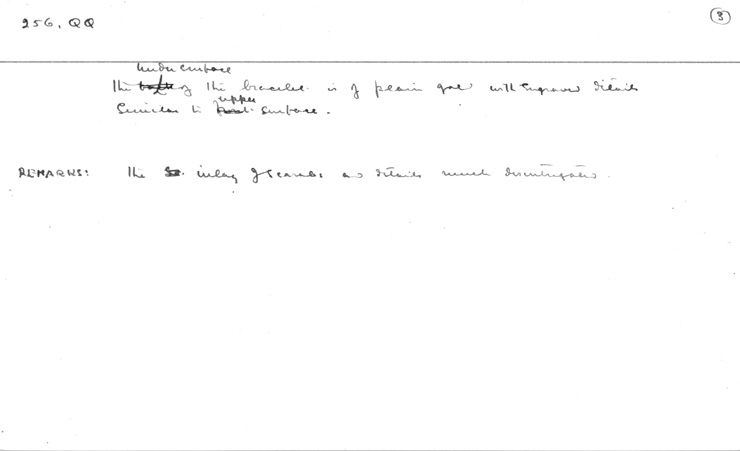 256, QQ
3
under surface
The back of the bracelet is of plain gold with engraved details
upper
similar to front surface.
REMARKS: The inlay of scarabs and details much disintegrated.